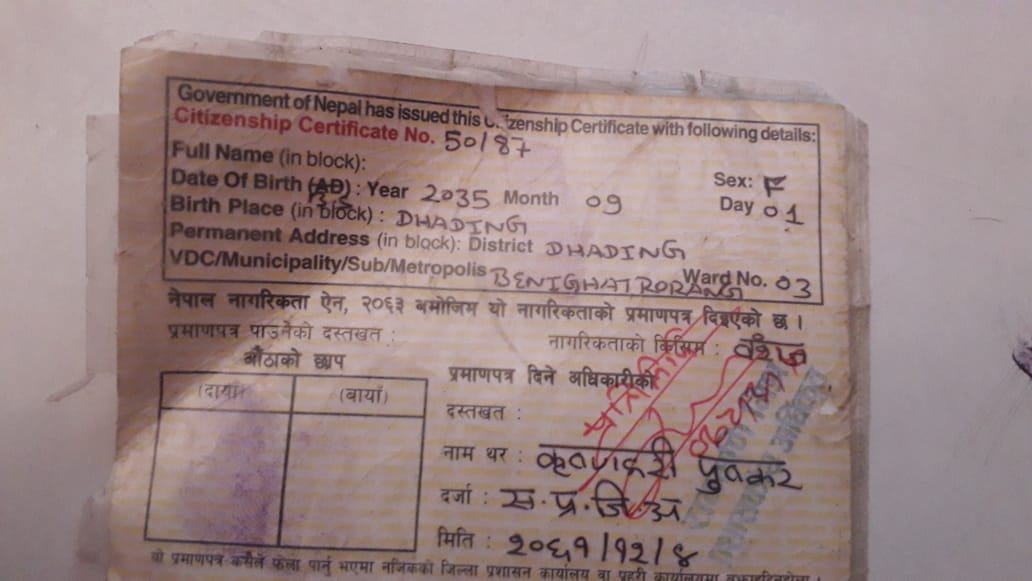 Government of Nepal has issued this C..zenship Certificate with following details:
Citizenship Certificate No. 50/87
Full Name (in block):
Sex: F
Date Of Birth (AD) B.S: Year 2035 Month 09 Day 01
Birth Place (in block) : DHADING
Permanent Address (in block): District DHADING
VDC/Municipality/Sub/Metropolis BENIGHATRORANG Ward No. 03
नेपाल नागरिकता ऐन, २०६३ बमोजिम यो नागरिकताको प्रमाणपत्र दिइएको छ ।
प्रमाणपत्र पाउनेको दस्तखत : नागरिकताको किसिम : वंशज
औंठाको छाप
प्रमाणपत्र दिने अधिकारीको
(दायाँ) (बायाँ)
दस्तखत :
प्रतिलिपि
नाम थर :
दर्जा : स.प्र.जि.अ.
मिति : २०६१/१२/४
यो प्रमाणपत्र कसैले फेला पार्नु भएमा नजिकको जिल्ला प्रशासन कार्यालय वा प्रहरी कार्यालयमा बुझाइदिनुहोला ।